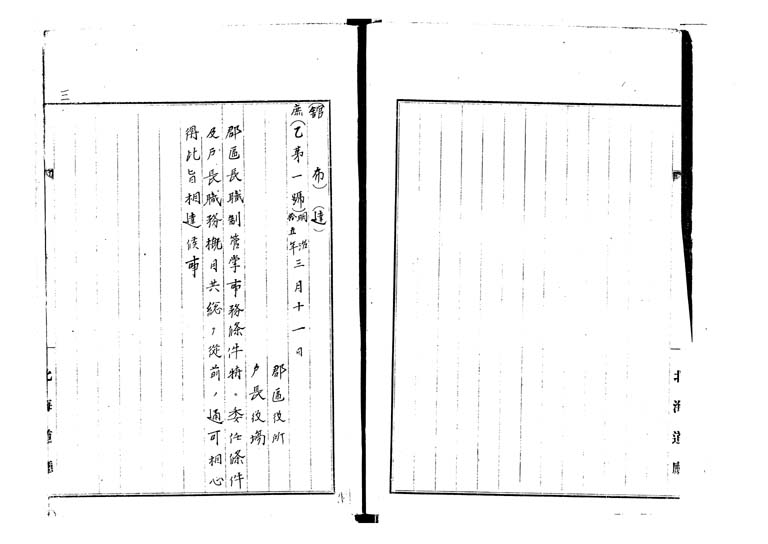 (館布)(達)
庶(乙第一號)明治拾五年三月十一日
郡區役所
戸長役場
郡區長職制管掌事務條件特ニ委任條件
及戸長職務概目共総テ從前ノ通可相心
得此旨相達候事
三
北海道廳
北海道廳